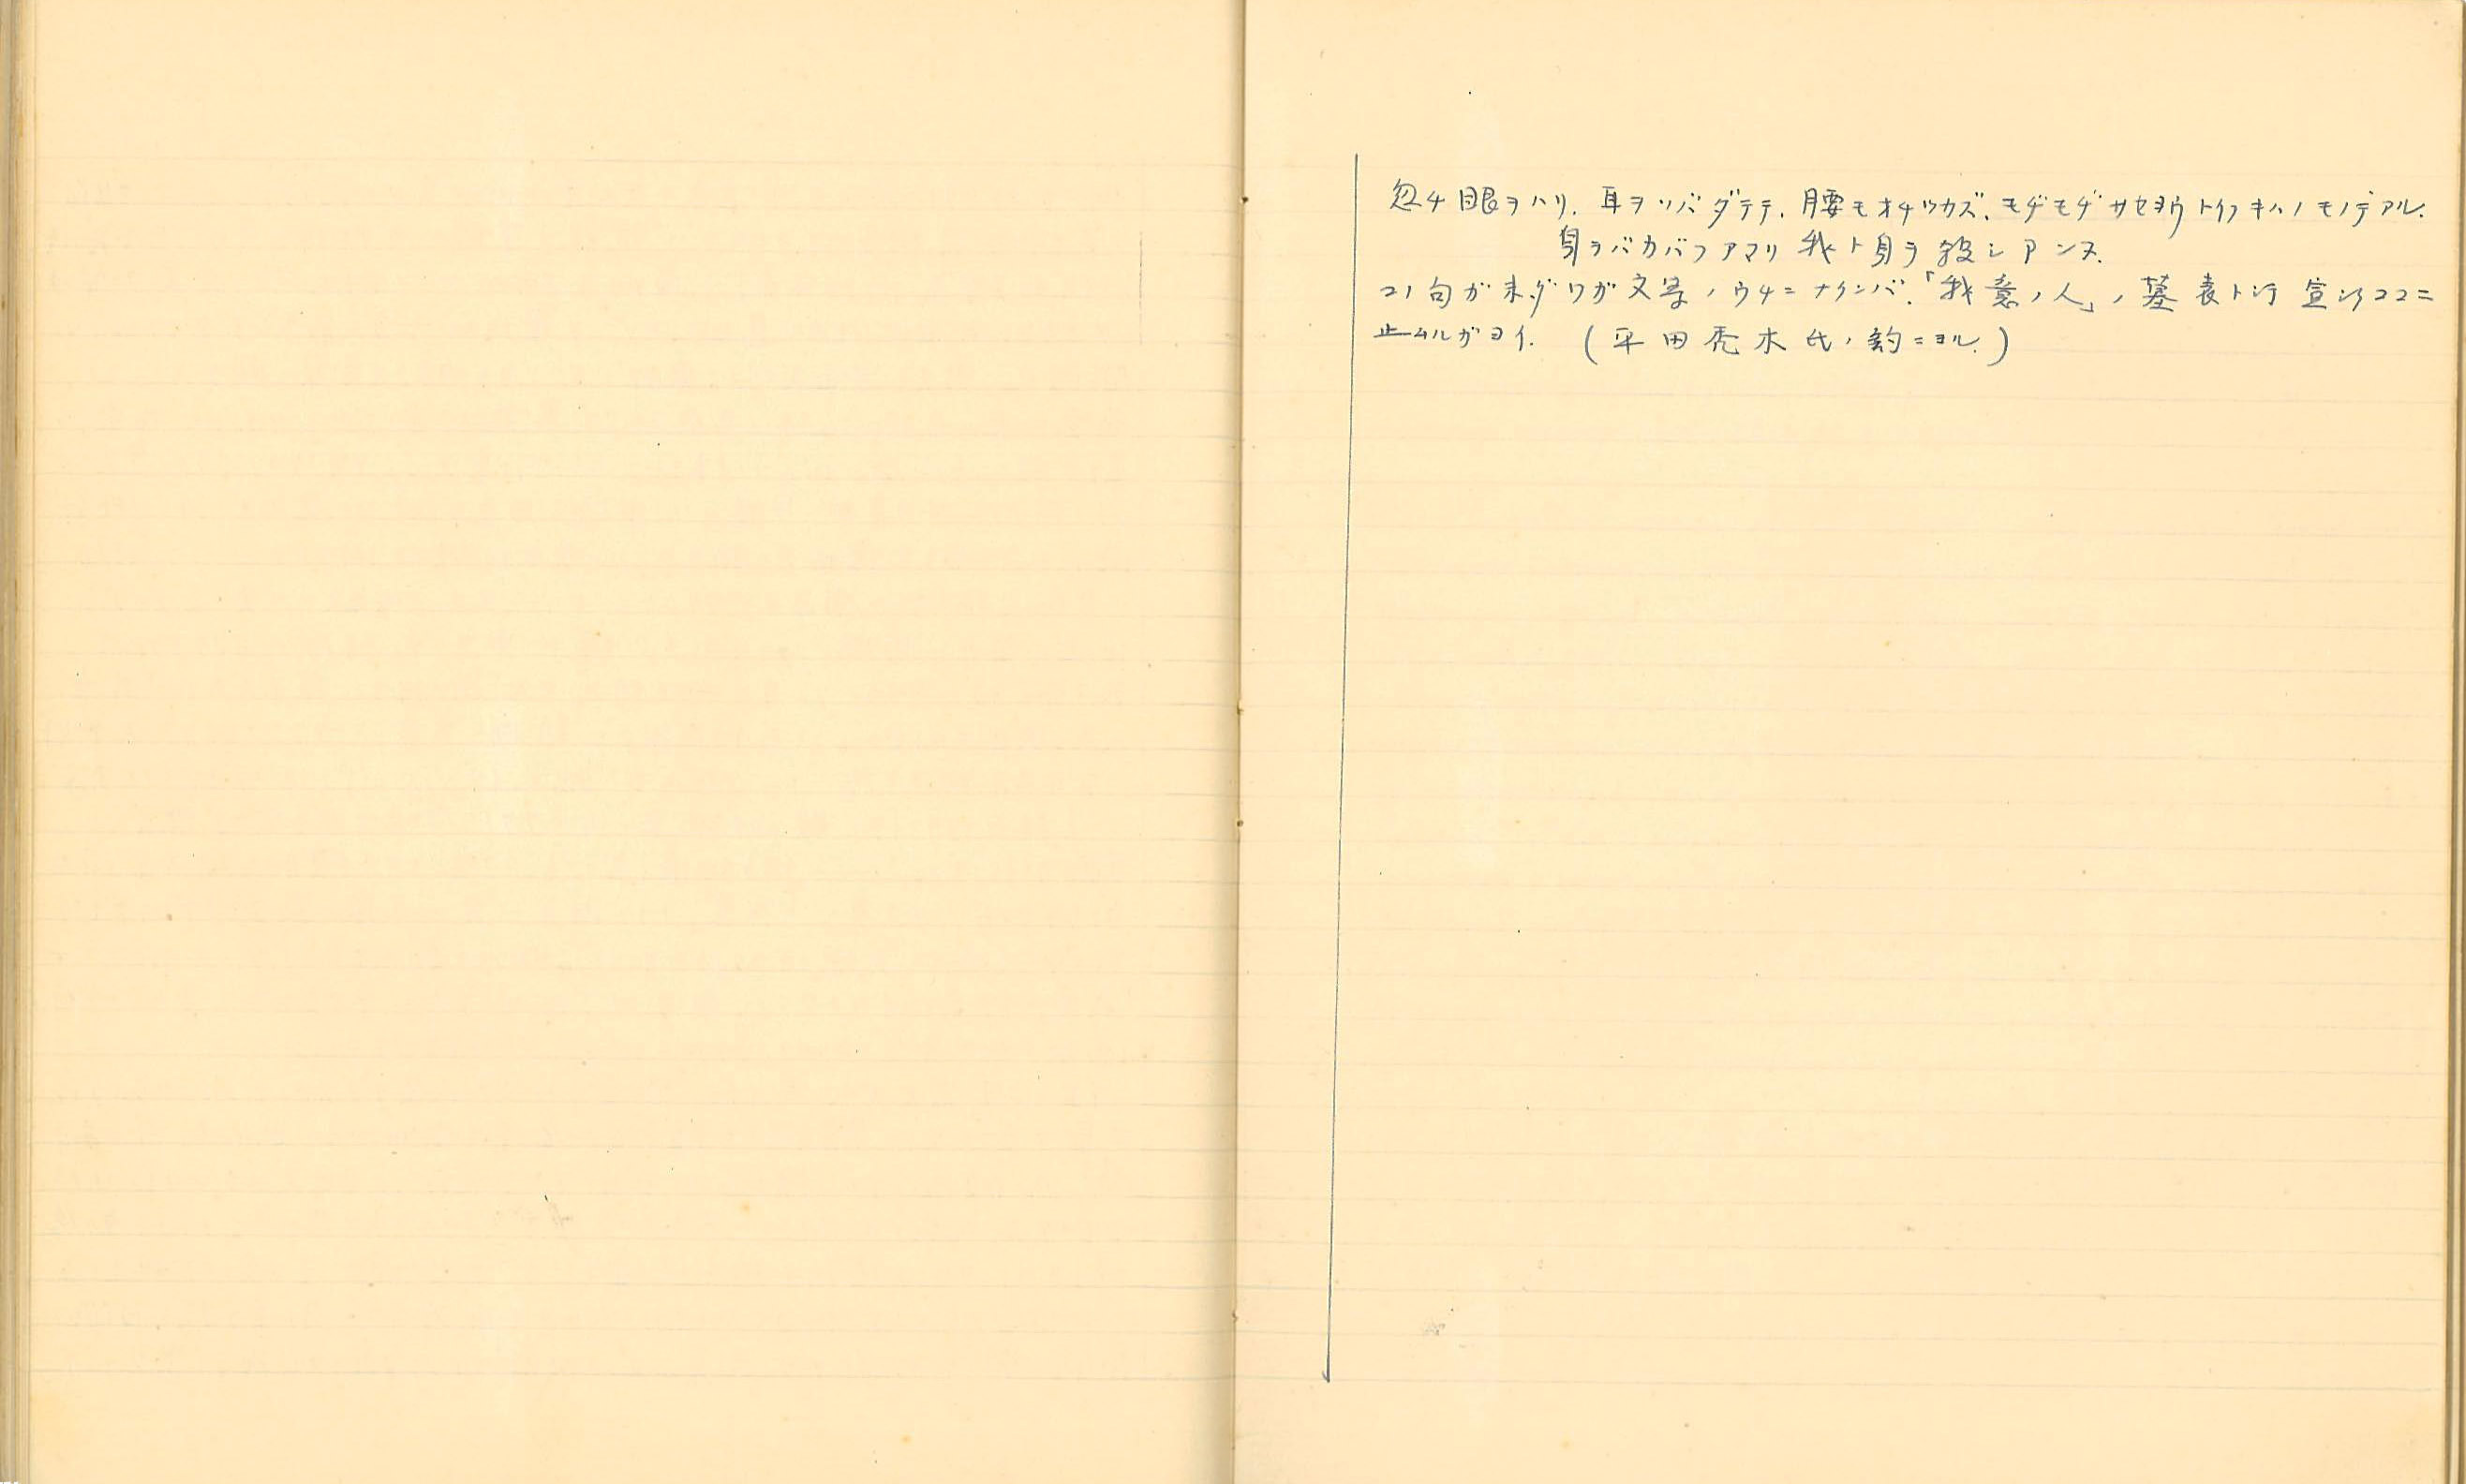 忽チ眼ヲハリ、耳ヲソバダテテ、腰モオチツカズ、モヂモヂサセヨウトイフキハノモノデアル.
身ヲバカバフアマリ我ト身ヲ殺シアンヌ.
コノ句ガ未ダワガ文学ノウチニナクンバ、「我意ノ人」ノ墓表トシテ宜シクココニ
止ムルガヨイ. (平田禿木氏ノ釣ニヨル.)